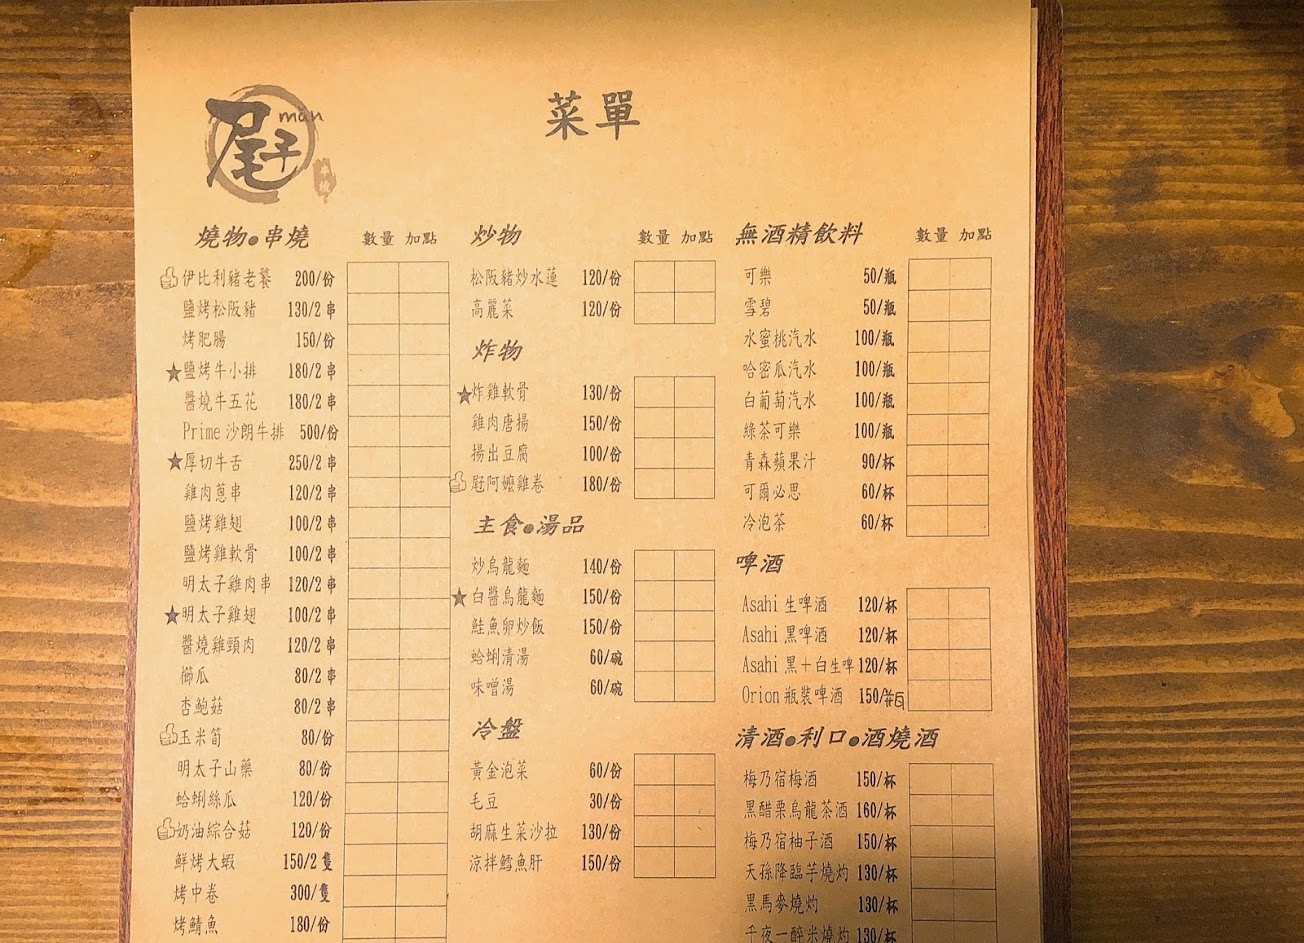 尾子
mǎn
菜單
燒物●串燒 數量 加點
伊比利豬老饕 200/份
鹽烤松阪豬 130/2串
烤肥腸 150/份
★鹽烤牛小排 180/2串
醬燒牛五花 180/2串
Prime沙朗牛排 500/份
★厚切牛舌 250/2串
雞肉蔥串 120/2串
鹽烤雞翅 100/2串
鹽烤雞軟骨 100/2串
明太子雞肉串 120/2串
★明太子雞翅 100/2串
醬燒雞頸肉 120/2串
櫛瓜 80/2串
杏鮑菇 80/2串
玉米筍 80/份
明太子山藥 80/份
蛤蜊絲瓜 120/份
奶油綜合菇 120/份
鮮烤大蝦 150/2隻
烤中卷 300/隻
烤鯖魚 180/份
炒物 數量 加點
松阪豬炒水蓮 120/份
高麗菜 120/份
炸物
★炸雞軟骨 130/份
雞肉唐揚 150/份
揚出豆腐 100/份
阿嬤雞卷 180/份
主食●湯品
炒烏龍麵 140/份
★白醬烏龍麵 150/份
鮭魚卵炒飯 150/份
蛤蜊清湯 60/碗
味噌湯 60/碗
冷盤
黃金泡菜 60/份
毛豆 30/份
胡麻生菜沙拉 130/份
涼拌鱈魚肝 150/份
無酒精飲料 數量 加點
可樂 50/瓶
雪碧 50/瓶
水蜜桃汽水 100/瓶
哈密瓜汽水 100/瓶
白葡萄汽水 100/瓶
綠茶可樂 100/瓶
青森蘋果汁 90/杯
可爾必思 60/杯
冷泡茶 60/杯
啤酒
Asahi 生啤酒 120/杯
Asahi 黑啤酒 120/杯
Asahi 黑＋白生啤 120/杯
Orion 瓶裝啤酒 150/瓶
清酒●利口●酒燒酒
梅乃宿梅酒 150/杯
黑醋栗烏龍茶酒 160/杯
梅乃宿柚子酒 150/杯
天孫降臨芋燒灼 130/杯
黑馬麥燒灼 130/杯
千夜一醉米燒灼 130/杯